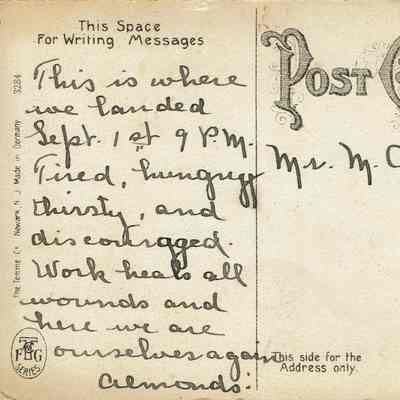 This Space
For Writing Messages
This is where
we landed
Sept. 1st 9 P.M.
Tired, hungry
thirsty, and
discouragged.
Work heals all
wounds and
here we are
ourselves again
Almonds.
POST C
Mr. M. C
This side for the
Address only.
The Temme Co. Newark, N. J. Made in Germany 3284
SERIES